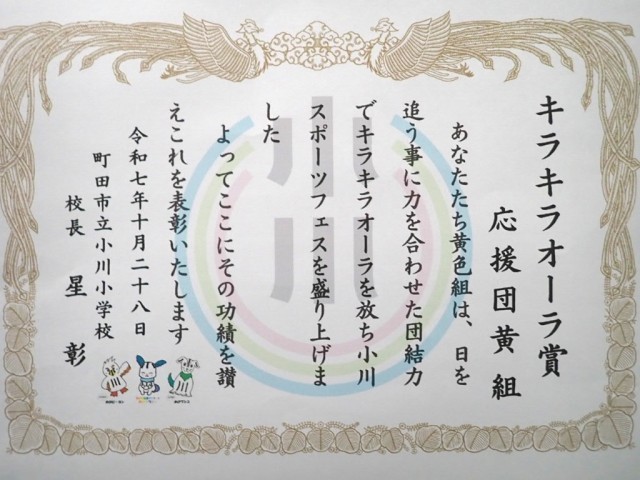 キラキラオーラ賞
応援団黄組
あなたたち黄色組は、日を
追う事に力を合わせた団結力
でキラキラオーラを放ち小川
スポーツフェスを盛り上げま
した
よってここにその功績を讃
えこれを表彰いたします
令和七年十月二十八日
町田市立小川小学校
校長 星 彰